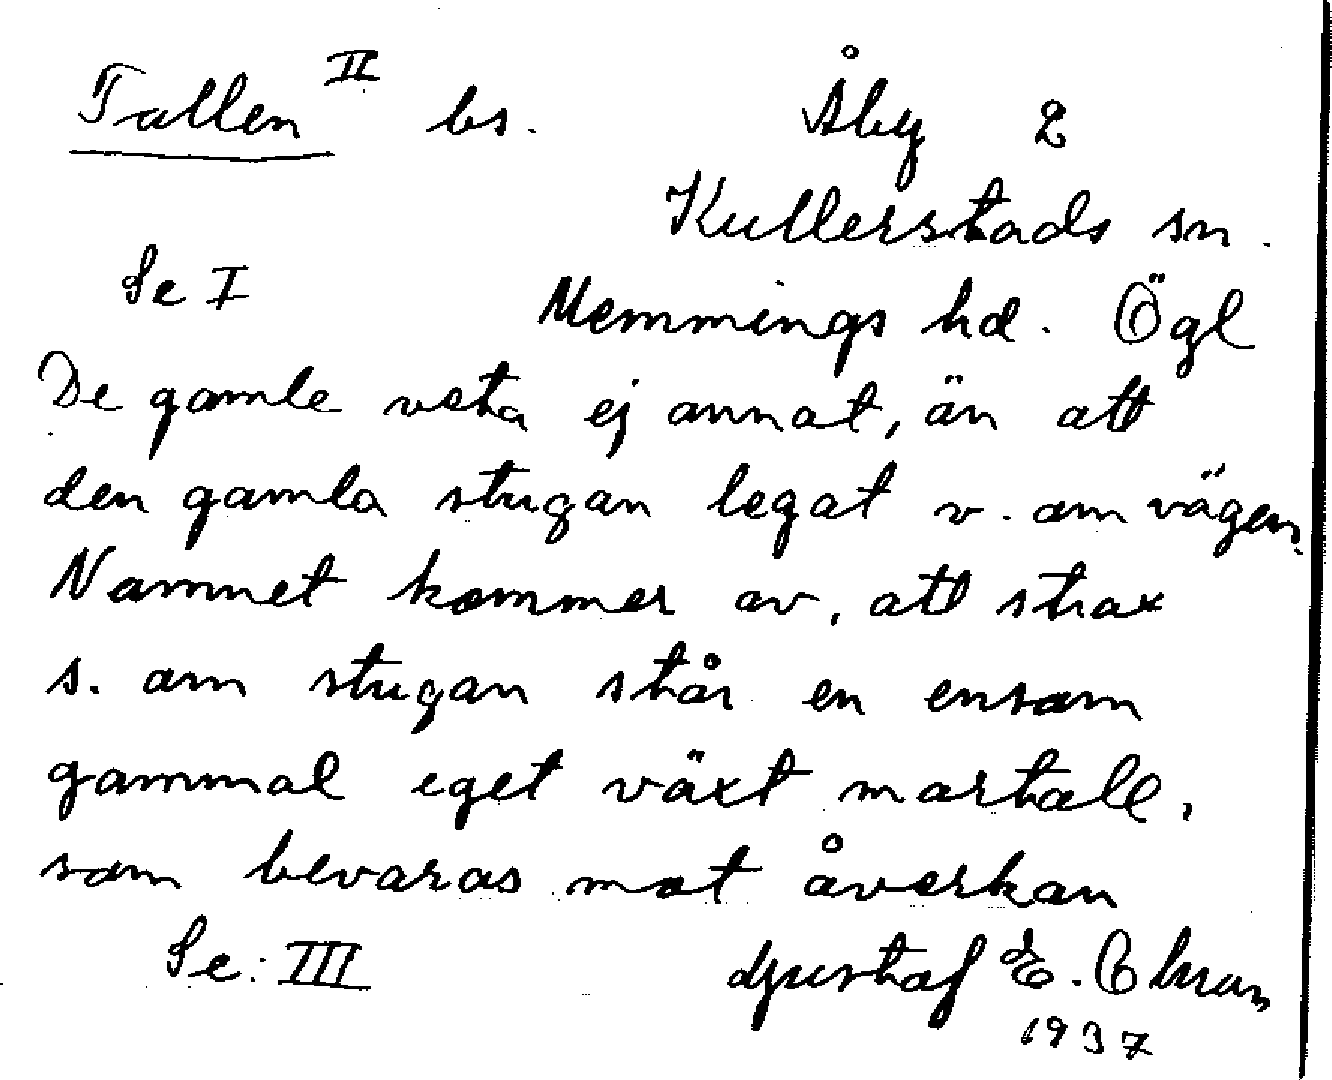 Tallen II bs. Åby 2
Kullerstads sn.
Se I Memmings hd. Ögl
De gamle veta ej annat, än att
den gamla stugan legat v. om vägen.
Namnet kommer av, att strax
s. om stugan står en ensam
gammal eget växt martall,
som bevaras mot åverkan
Se: III Gustaf E.
1937